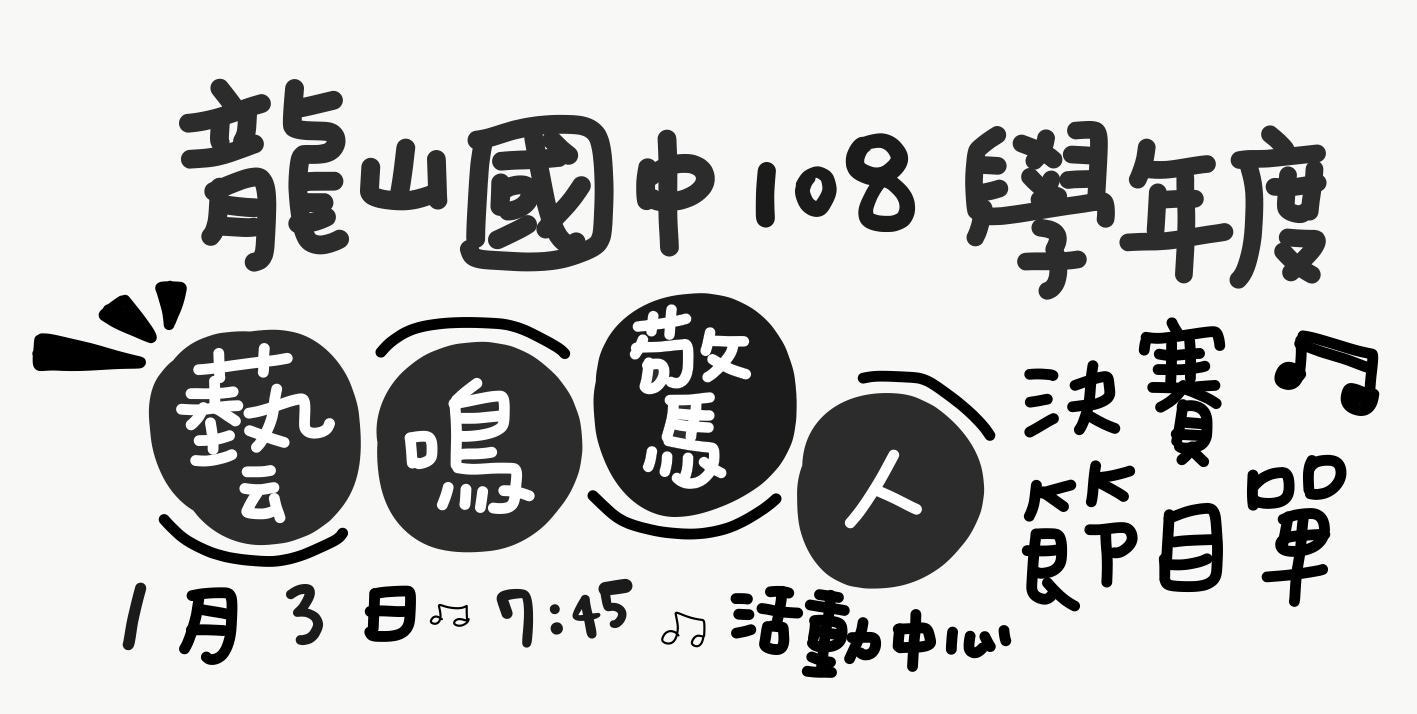 龍山國中108學年度
藝鳴驚人
決賽
節目單
1月3日 7:45 活動中心